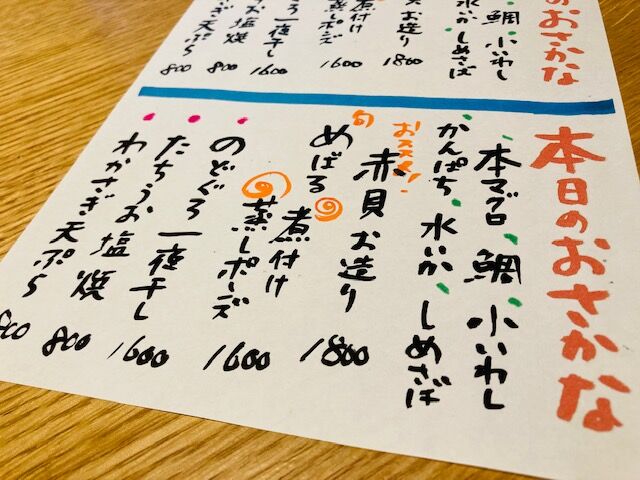 のおさかな
鯛 小いわし
水いか しめさば
お造り 1800
煮付け
蒸しポンズ 1600
ろ一夜干し 1600
お塩焼 800
ぎ天ぷら 800
本日のおさかな
本マグロ 鯛 小いわし
かんぱち 水いか しめさば
おススメ!
旬 赤貝 お造り 1800
めばる 煮付け
蒸しポンズ 1600
のどぐろ一夜干し 1600
たちうお塩焼 800
わかさぎ天ぷら 800